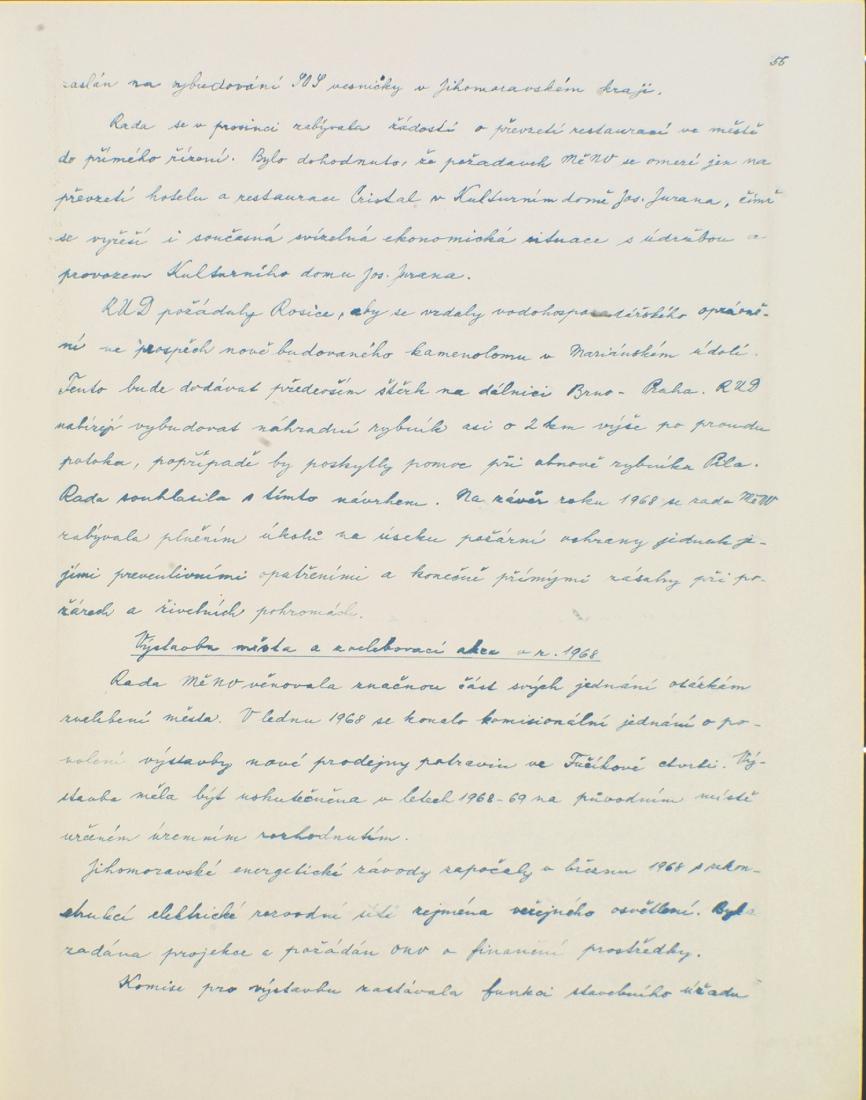 55
zaslán na vybudování SOS vesničky v Jihomoravském kraji.
Rada se v prosinci zabývala žádostí o převzetí restaurací ve městě
do přímého řízení. Bylo dohodnuto, že požadavek MěNV se omezí jen na
převzetí hotelu a restaurace Cristal v Kulturním domě Jos. Jurana, čímž
se vyřeší i současná svízelná ekonomická situace s údržbou a
provozem Kulturního domu Jos. Jurana.
RUD požádaly Rosice, aby se vzdaly vodohospodářského oprávně-
ní ve prospěch nově budovaného kamenolomu v Mariánském údolí.
Tento bude dodávat především štěrk na dálnici Brno - Praha. RUD
nabízejí vybudovat náhradní rybník asi o 2 km výše po proudu
potoka, popřípadě by poskytly pomoc při obnově rybníka Pila.
Rada souhlasila s tímto návrhem. Na závěr roku 1968 se rada MěNV
zabývala plněním úkolů na úseku požární ochrany jednak je-
jími preventivními opatřeními a konečně přímými zásahy při po-
žárech a živelních pohromách.
Výstavba města a zvelebovací akce v r. 1968
Rada MěNV věnovala značnou část svých jednání otázkám
zvelebení města. V lednu 1968 se konalo komisionální jednání o po-
volení výstavby nové prodejny potravin ve Fučíkově čtvrti. Vý-
stavba měla být uskutečněna v letech 1968-69 na původním místě
určeném územním rozhodnutím.
Jihomoravské energetické závody započaly v březnu 1968 s rekon-
strukcí elektrické rozvodné sítě zejména veřejného osvětlení. Byla
zadána projekce a požádán ONV o finanční prostředky.
Komise pro výstavbu zastávala funkci stavebního úřadu